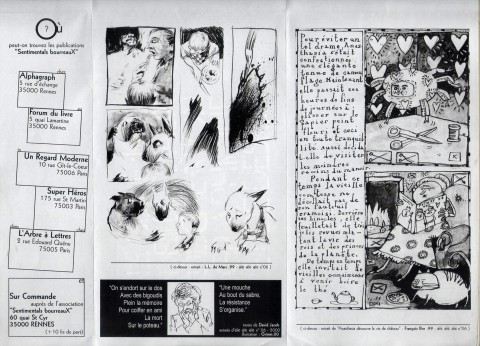 Où
?
peut-on trouvez les publications
"Sentimentals bourreauX"
chez
Alphagraph
5 rue d'échange
35000 Rennes
Forum du livre
5 quai Lamartine
35000 Rennes
Un Regard Moderne
10 rue Gît-le-Coeur
75006 Paris
Super Héros
175 rue St Martin
75003 Paris
L'Arbre à Lettres
2 rue Edouard Quénu
75005 Paris
et
Sur Commande
auprès de l'association
"Sentimentals bourreauX"
60 quai St Cyr
35000 RENNES
(+ 10 frs de port)
( ci-dessus : extrait : L.L. de Mars /99 -
"On s'endort sur le dos
Avec des bigoudis
Plein la mémoire
Pour coiffer en ami
La mort
Sur le poteau."
"Une mouche
Au bout du sabre,
La résistance
S'organise."
textes de David Jacob
Pour éviter un
tel drame, Anas
thasia s'était
confectionné
une élégante
tenue de camou
flage. Maintenant
elle passait ses
heures de fins
de journées à
glisser sur le
papier peint
fleuri et ceci
en toute tranquil
lité, aussi décida
t.elle de visiter
les moindres
recoins du manoir.
Pendant ce
temps la vieille
comtesse ne
décollait pas de
son fauteuil
cramoisi. Derrière
son binocle, elle
feuilletait de très
vies des
rois et des princes
de la planète.
De temps en temps
elle invitait les
vieilles comtesses
à venir boire
le thé
( ci-dessus : extrait de "Anasthasia découvre la vie de château" - François Bize /99 -